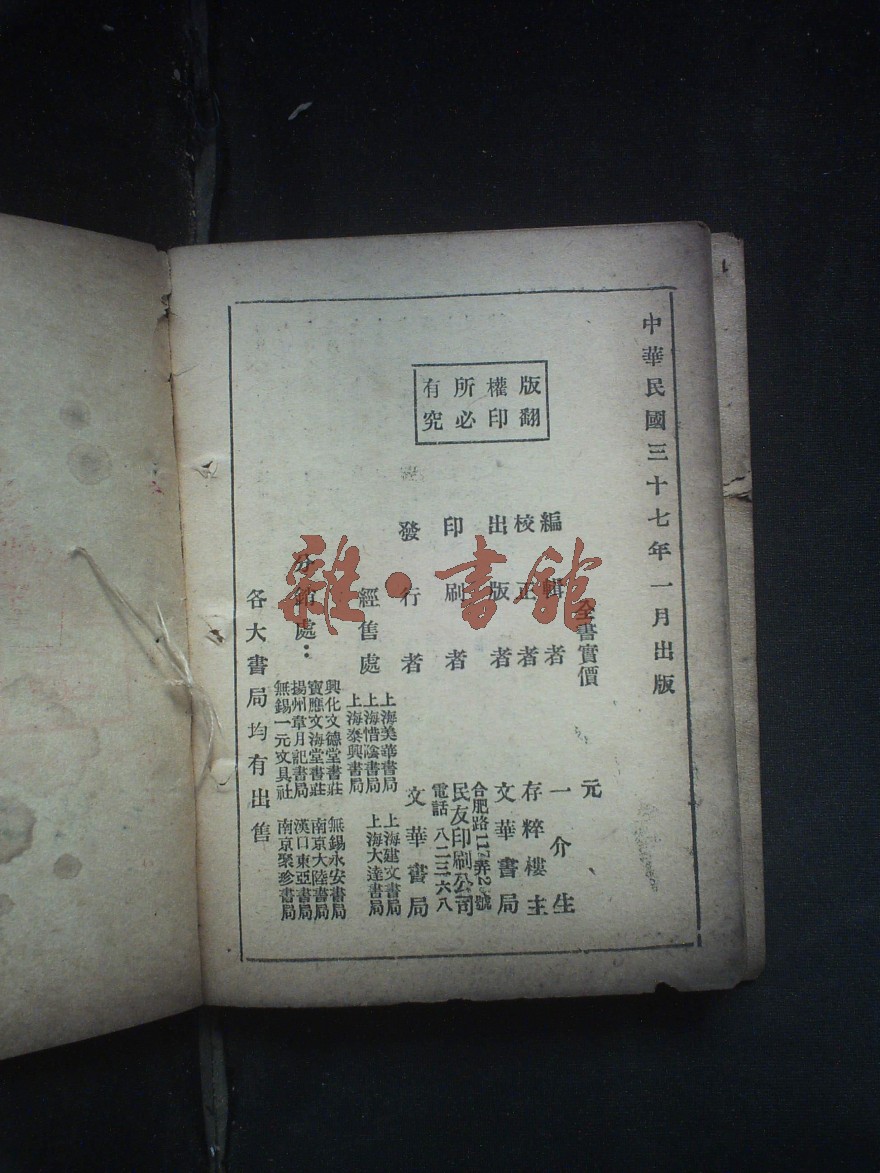 中華民國三十七年一月出版
版權所有
翻印必究
全書實價 元
編輯者 一介生
校正者 存粹樓主
出版者 文華書局
印刷者 民友印刷公司
合肥路117弄2號
電話 八二三六八
發行者 文華書局
經售處
上海美華書局 上海建文書局
上海惜陰書局 上海大達書局
上海泰興書局
分銷處：
興化文德堂書莊 無錫永安書局
寶應文海堂書莊 南京大陸書局
揚州章月記書局 漢口東亞書局
無錫一元文具社 南京聚珍書局
各大書局均有出售
雜·書館